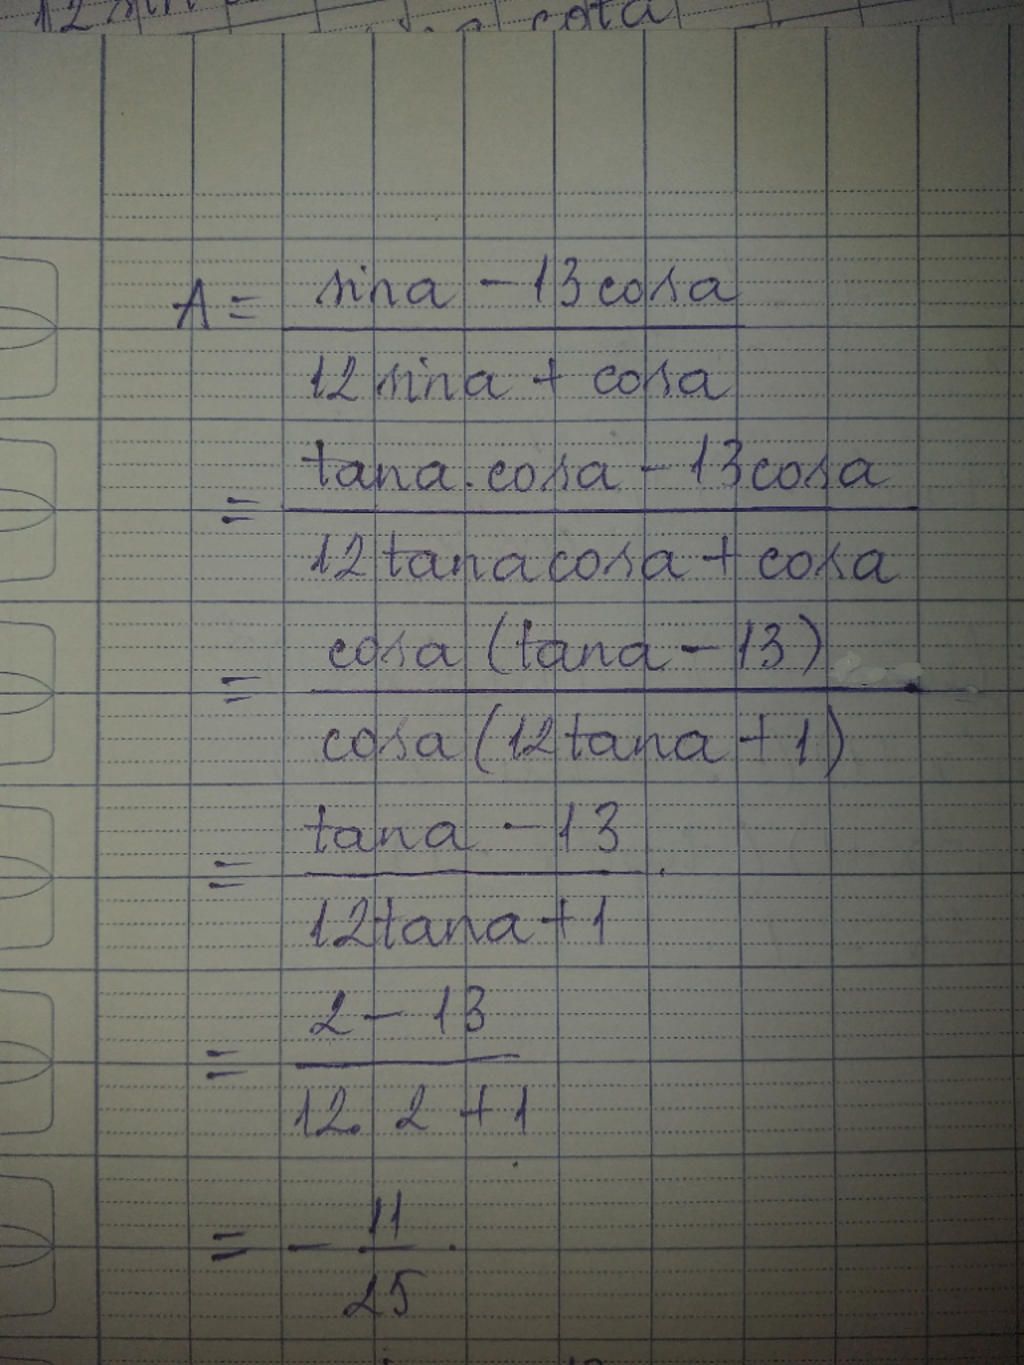 12 sin cosa
A = sina - 13cosa
12 sina + cosa
= tana.cosa - 13cosa
12tanacosa + cosa
= cosa (tana - 13)
cosa (12tana + 1)
= tana - 13.
12tana + 1
= 2 - 13
12. 2 + 1
= - 11.
25